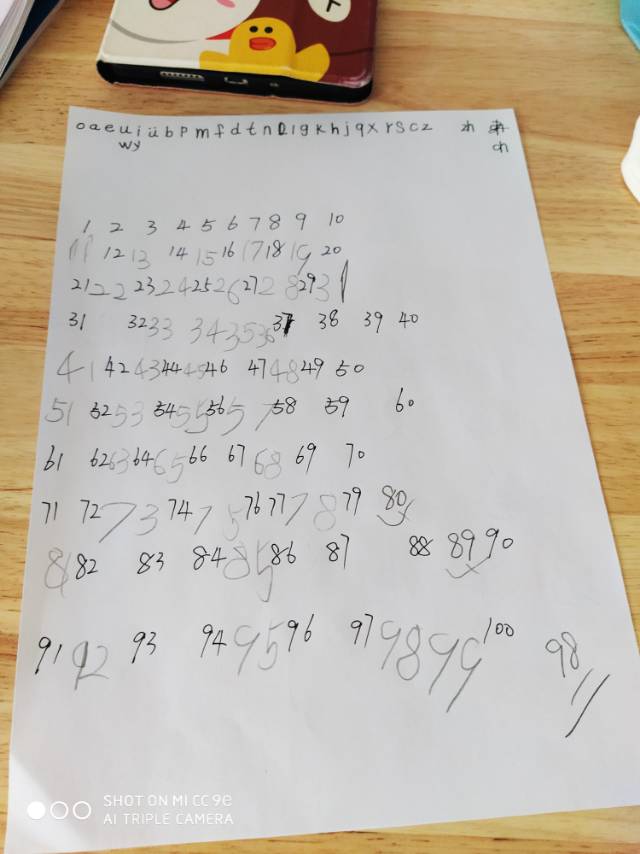 o a e u i ü b p m f d t n l g k h j q x r s c z zh
wy ch
1 2 3 4 5 6 7 8 9 10
11 12 13 14 15 16 17 18 19 20
21 22 23 24 25 26 27 28 29 31
31 32 33 34 35 36 37 38 39 40
41 42 43 44 45 46 47 48 49 50
51 52 53 54 55 56 57 58 59 60
61 62 63 64 65 66 67 68 69 70
71 72 73 74 75 76 77 78 79 80
81 82 83 84 85 86 87 88 89 90
91 92 93 94 95 96 97 98 99 100 98 11
SHOT ON MI CC 9e
AI TRIPLE CAMERA